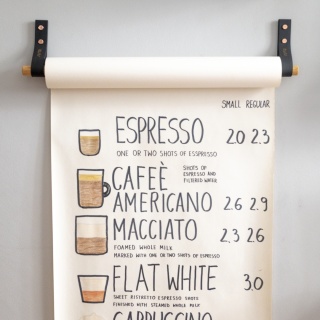 SMALL REGULAR
ESPRESSO 2.0 2.3
ONE OR TWO SHOTS OF ESSPRESSO
CAFEÈ
SHOTS OF
ESPRESSO AND
FILTERED WATER
AMERICANO 2.6 2.9
MACCIATO 2,3 2.6
FOAMED WHOLE MILK
MARKED WITH ONE OR TWO SHOTS OF ESPRESSO
FLAT WHITE 3.0
SWEET RISTRETTO ESPRESSO SHOTS
FINISHED WITH STEAMED WHOLE MILK
CAPPUCCINO